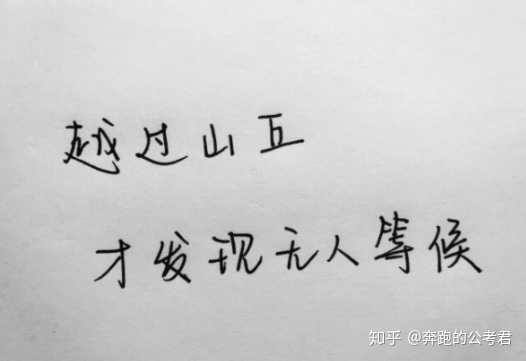 越过山丘
才发现无人等候
知乎 @奔跑的公考君